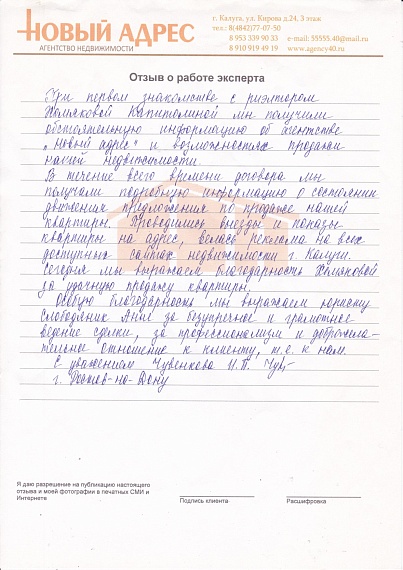 НОВЫЙ АДРЕС
АГЕНТСТВО НЕДВИЖИМОСТИ
г. Калуга, ул. Кирова д.24, 3 этаж
тел.: 8(4842)77-07-50
8 953 339 90 33 e-mail: 55555.40@mail.ru
8 910 919 49 19 www.agency40.ru
Отзыв о работе эксперта
При первом знакомстве с риэлтором
Холяковой Капитолиной мы получили
обстоятельную информацию об агентстве
"Новый адрес" и возможностях продажи
нашей недвижимости.
В течение всего времени договора мы
получали подробную информацию о состоянии
движения предложения по продаже нашей
квартиры. Проводились выезды и показы
квартиры на адрес, велась реклама на всех
доступных сайтах недвижимости г. Калуги.
Сегодня мы выражаем благодарность Холяковой
за удачную продажу квартиры.
Особую благодарность мы выражаем юристу
Слободяник Анне за безупречное и грамотное
ведение сделки, за профессионализм и доброжела-
тельное отношение к клиенту, т.е. к нам.
С уважением Чувенкова Н.П.
г. Ростов-на-Дону
Я даю разрешение на публикацию настоящего
отзыва и моей фотографии в печатных СМИ и
Интернете
Подпись клиента
Расшифровка